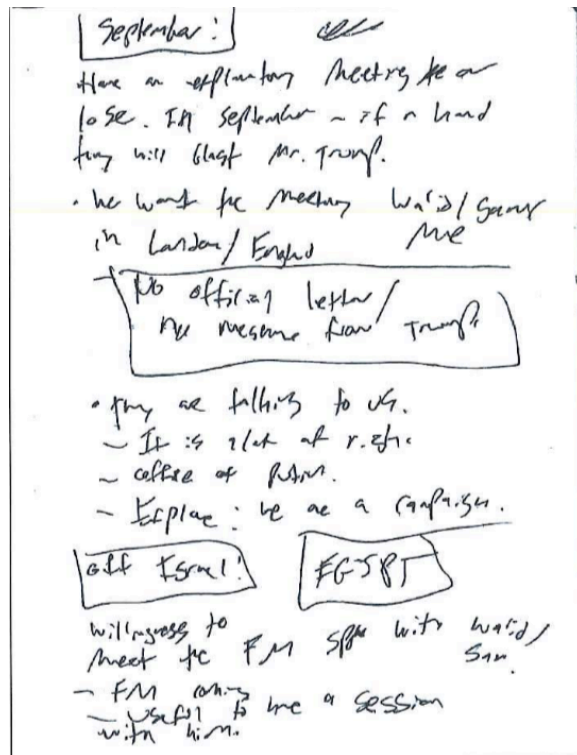 September:
Have an exploratory meeting or
lose. In September – if a hand
they will blast Mr. Trump.
• we want the meeting Walid/Sam
me
in London/England
– No official letter/
no message from Trump.
• they are talking to us.
– It is a lot of risk.
– office of
– Explore: we are a campaign.
off Israel! EGYPT
willingness to
meet the FM with Walid/
Sam.
– FM coming
– Useful to have a session
with him.